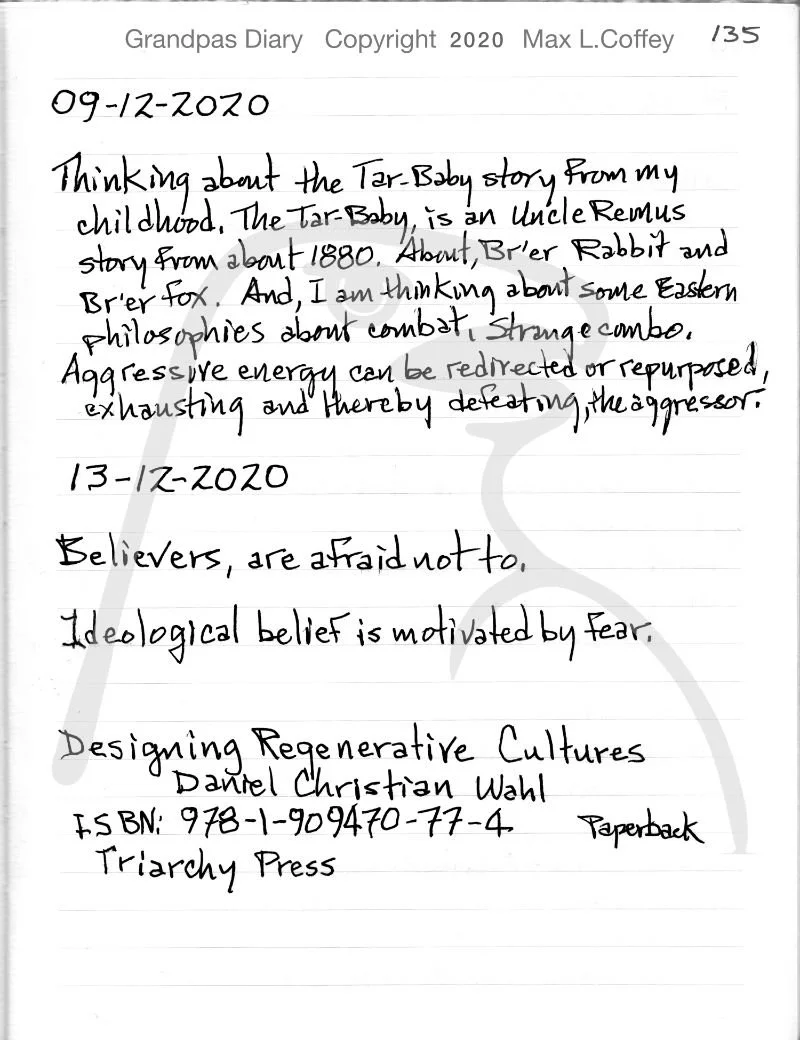 Grandpas Diary Copyright 2020 Max L.Coffey 135
09-12-2020
Thinking about the Tar-Baby story from my
childhood. The Tar-Baby, is an Uncle Remus
story from about 1880. About, Br'er Rabbit and
Br'er Fox. And, I am thinking about some Eastern
philosophies about combat. Strange combo.
Aggressive energy can be redirected or repurposed,
exhausting and thereby defeating, the aggressor.
13-12-2020
Believers, are afraid not to.
Ideological belief is motivated by fear.
Designing Regenerative Cultures
Daniel Christian Wahl
ISBN: 978-1-909470-77-4 Paperback
Triarchy Press